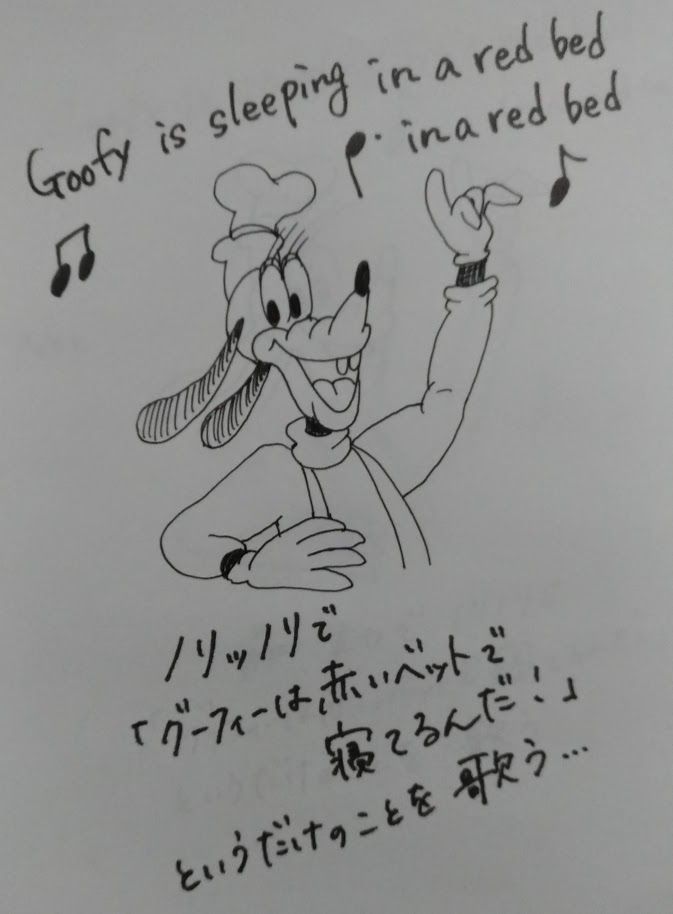 Goofy is sleeping in a red bed
in a red bed
ノリッノリで
「グーフィーは、赤いベットで
寝てるんだ！」
というだけのことを歌う…